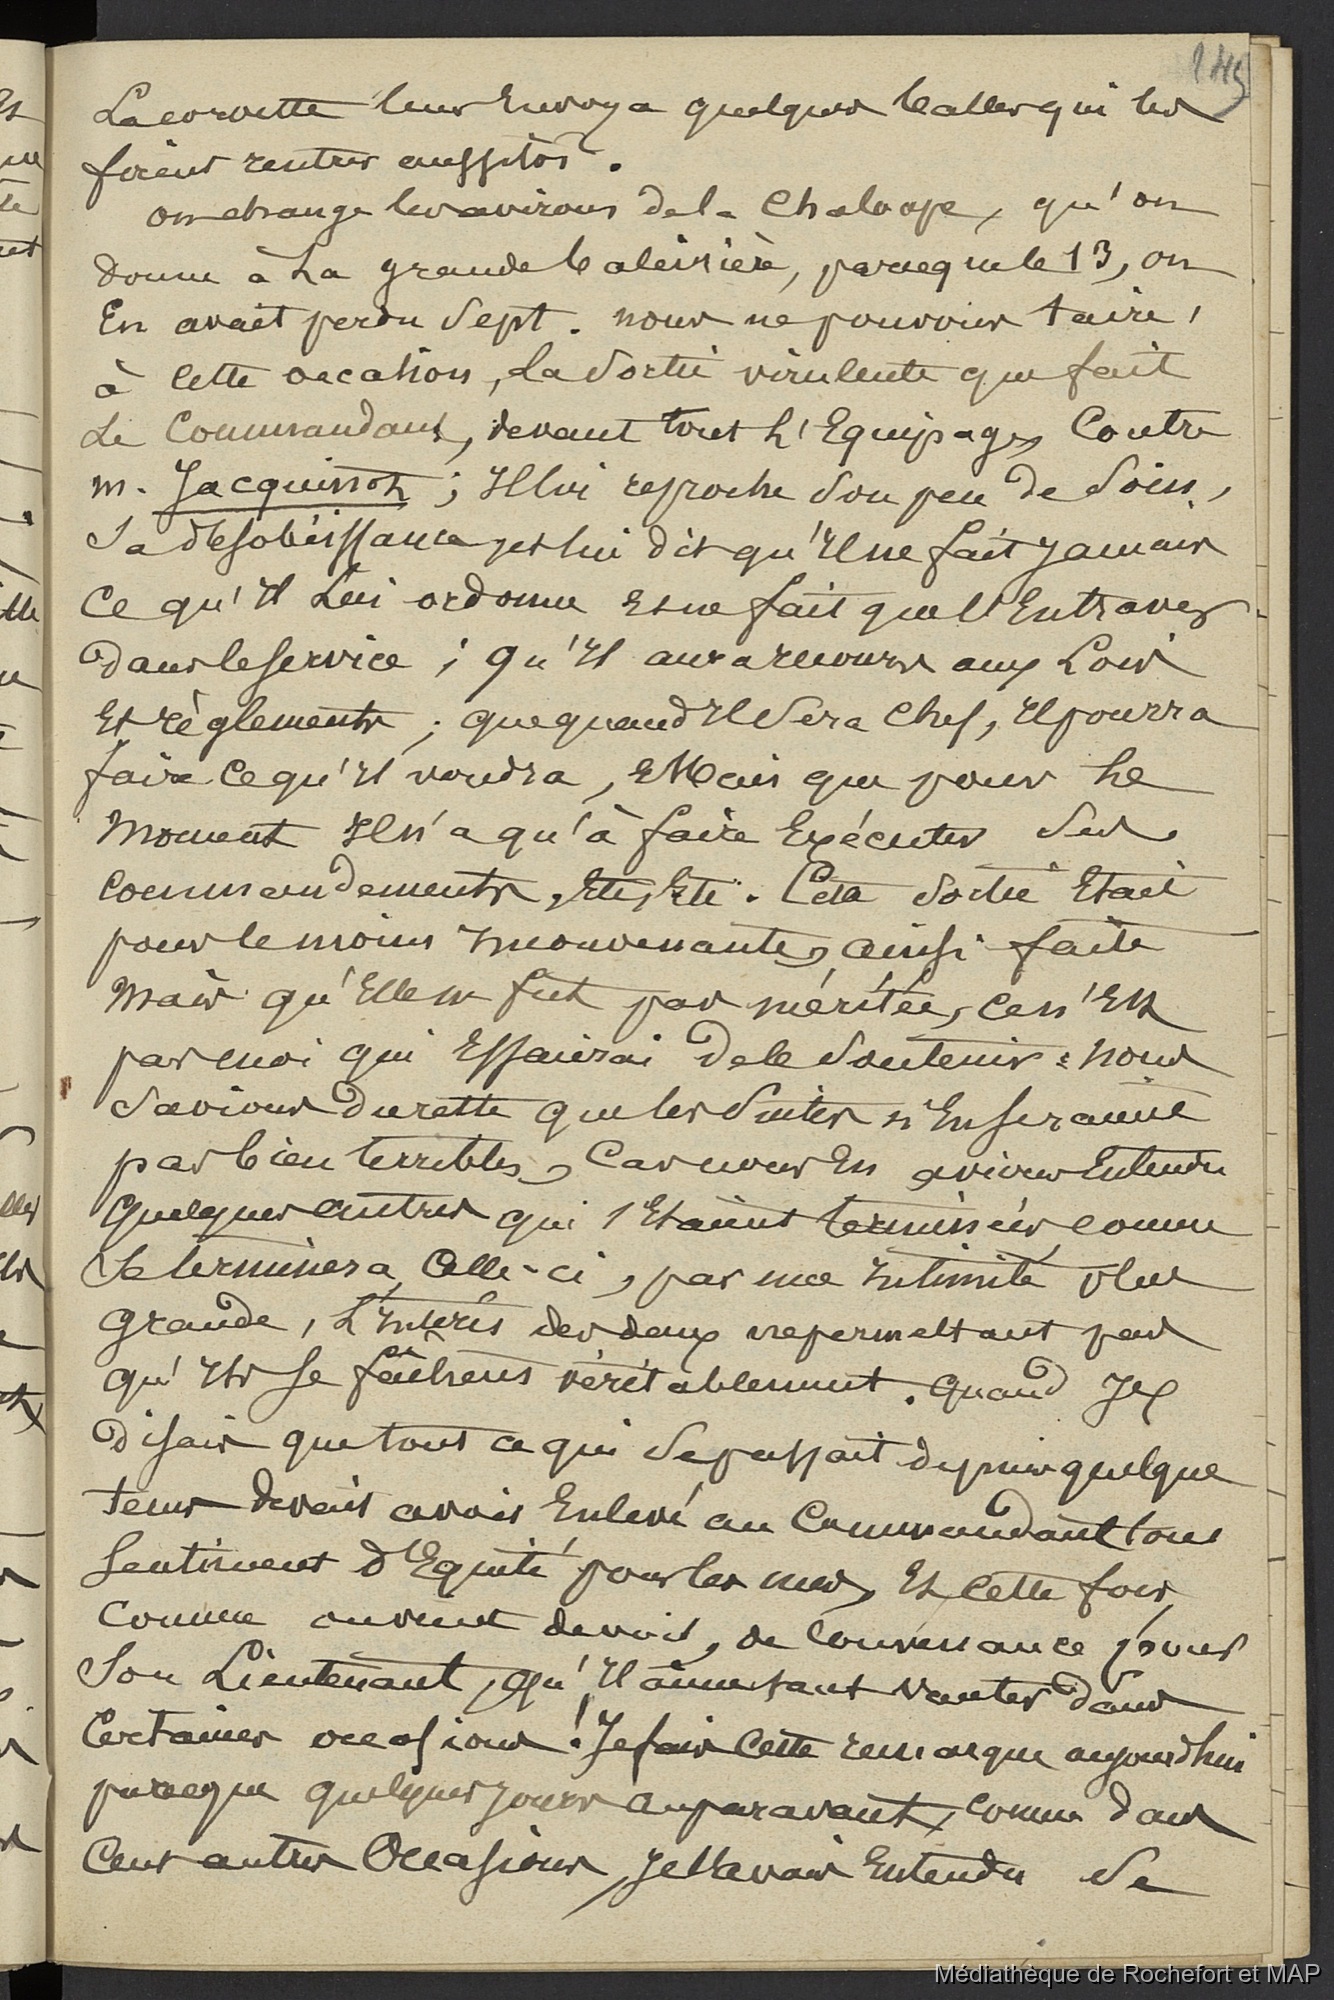 145
La corvette leur Envoya quelques balles qui les
firent rentrer aussitôt.
on change les avirons de la Chaloupe, qu'on
donne à La grande baleinière, parceque le 13, on
En avait perdu Sept. nous ne pouvons taire,
à Cette occasion, La Sortie virulente que fait
Le Commandant, devant tout L'Equipage, Contre
m. Jacquinot ; Il lui reproche Son peu de Soin,
Sa désobéissance, et lui dit qu'Il ne fait jamais
Ce qu'Il Lui ordonne Et ne fait que l'Entraver
dans le Service ; qu'Il aura recours aux Lois
Et règlements ; que quand Il Sera Chef, Il pourra
faire Ce qu'Il voudra, Mais que pour Le
Moment Il n'a qu'à faire Exécuter Ses
Commandements, Etc, Etc. Cette Sortie Etait
pour le moins Inconvenante, ainsi faite
Mais qu'Elle ne fut pas méritée, Ce n'Est
pas moi qui Essaierai de le Soutenir : nous
Savions du reste que les Suites n'En Seraient
pas bien terribles, Car nous En avions Entendu
quelques autres qui S'Etaient terminées comme
Se terminera Celle-ci, par une Intimité plus
grande, L'Intérêt des deux ne permettant pas
qu'Ils Se fâchent véritablement. quand Je
disais que tout ce qui Se passait depuis quelque
tems devait avoir Enlevé au Commandant tout
Sentiment d'Equité pour les uns, Et Cette fois
Comme souvent devoir, de Convenance pour
Son Lieutenant, qu'Il aime tant vanter dans
Certaines occasions ! Je fais Cette remarque aujourdhui
parceque quelques jours auparavant, comme dans
Cent autres Occasions, Je l'avais Entendu Se
Médiathèque de Rochefort et MAP